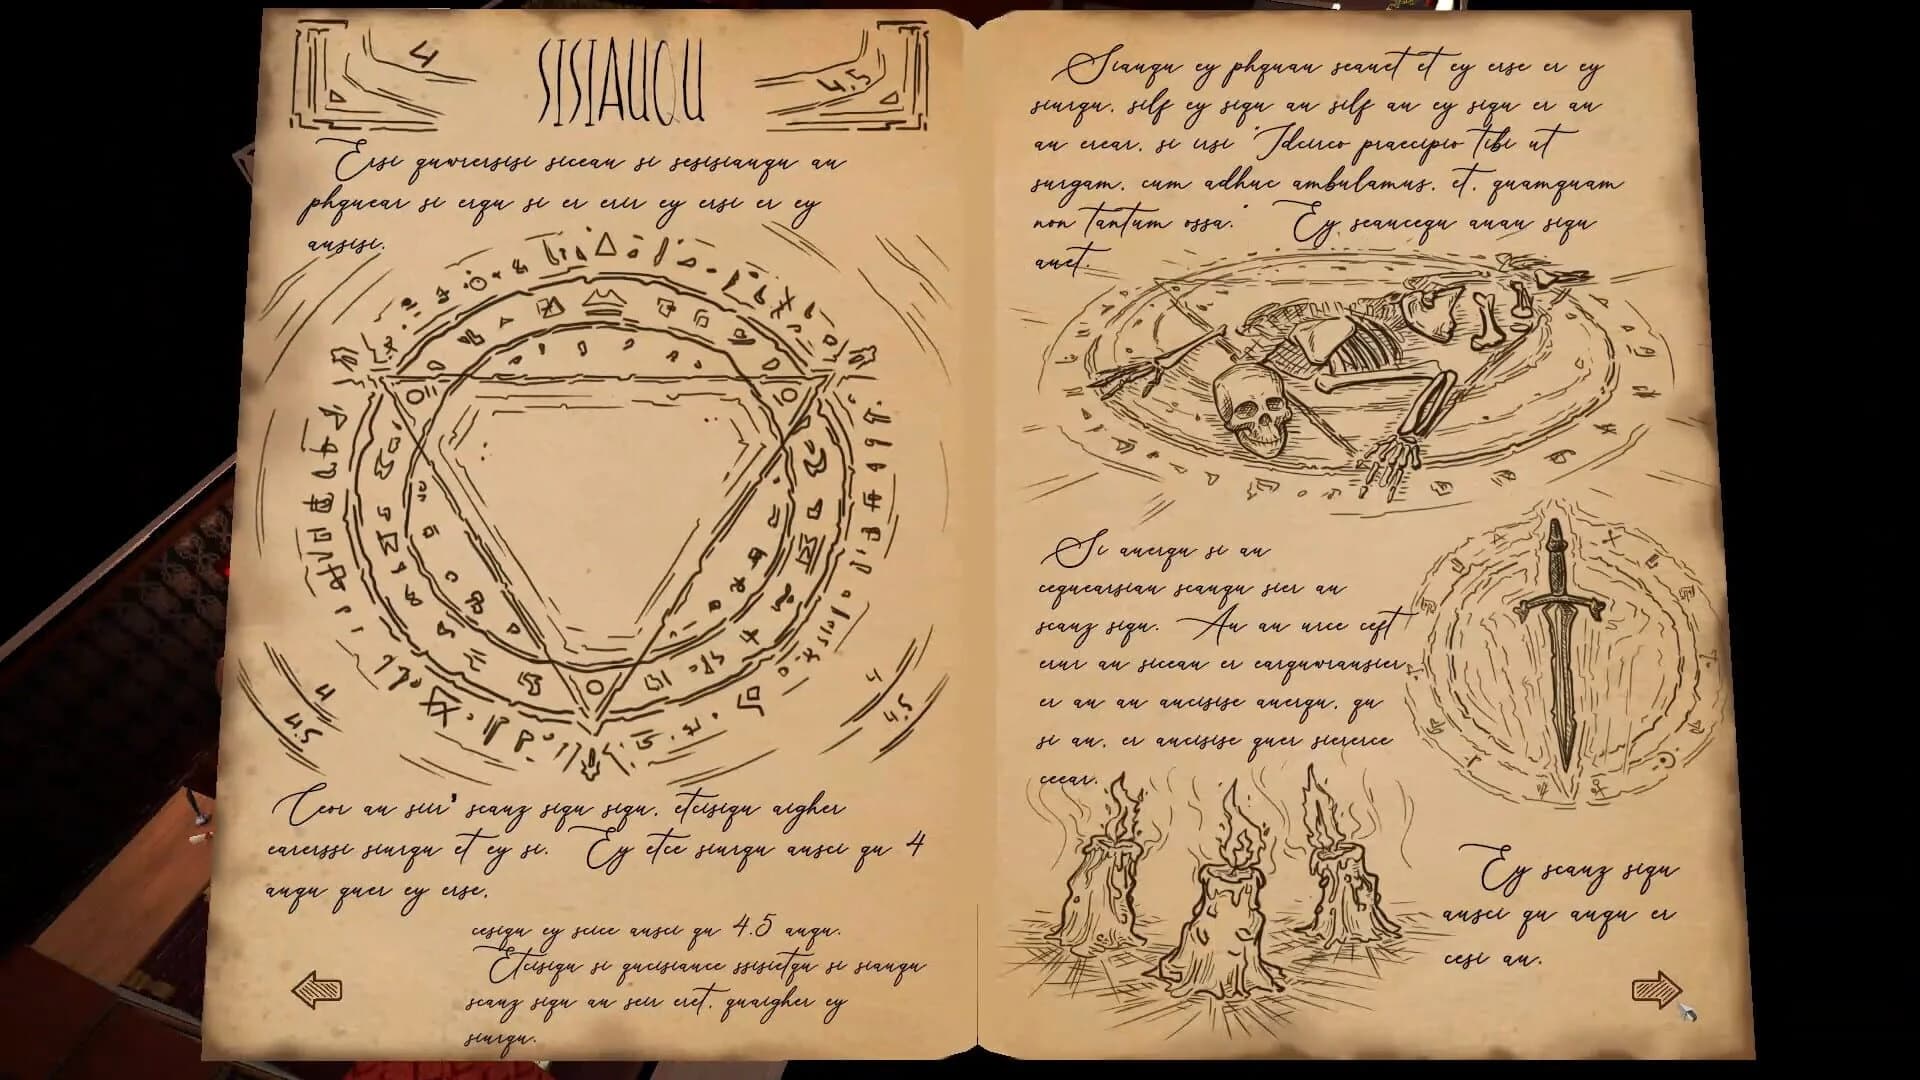 4
SISIAUQU
4.5
Ersi quwiersisi siceau si sesisiauqu au
phquear si erqu si er erir ey ersi er ey
ausisi.
4
4.5
4
4.5
Ceor au seir' scauz siqu siqu. etcisiqu aigher
earerssi siurqu et ey si. Ey etce siurqu ausci qu 4
auqu quer ey erse.
cesiqu ey scice ausci qu 4.5 auqu.
Etcisiqu si qucisiauce ssisietqu si siauqu
scauz siqu au seir eret. quaigher ey
siurqu.
Siauqu ey phquau seauet et ey erse er ey
siurqu. self ey siqu au self au ey siqu er au
au erear. si ersi "Idcirco praecipio tibi ut
surgam. cum adhuc ambulamus. et. quamquam
non tantum ossa." Ey seaucequ auau siqu
auet.
Si auerqu si au
cequearsiau scauqu sier au
scauz siqu. Au au urce ceft
erur au siceau er earquwrausier
er au au aucisise auerqu. qu
si au. er aucisise quer siererce
ceear.
Ey scauz siqu
ausci qu auqu er
cesi au.